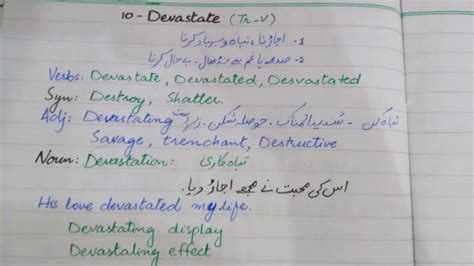 10 - Devastate (Tr-V)
1- اجاڑنا، تباہ و برباد کرنا
2- صدمہ یا غم سے نڈھال، بے حال کرنا
Verbs: Devastate, Devastated, Desvastated
Syn: Destroy, Shatter.
Adj: Devastating تباہ کن - شدید المناک - حوصلہ شکن - زبردست
Savage, trenchant, Destructive
Noun: Devastation: تباہ کاری
اس کی محبت نے مجھے اجاڑ دیا۔
His love devastated my life.
Devastating display
Devastating effect